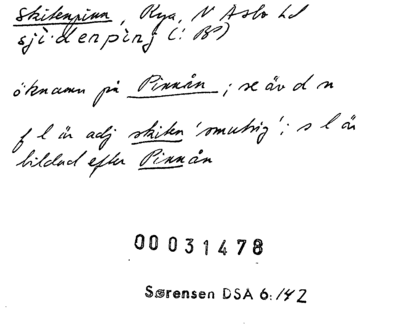 Skitenpinn, Rya, N Åsbo hd
sji·denpinʃ (: B²)
öknamn på Pinnån; se äv d n
f l är adj skiten 'smutsig'; s l är
bildad efter Pinnån
00031478
Sørensen DSA 6:142